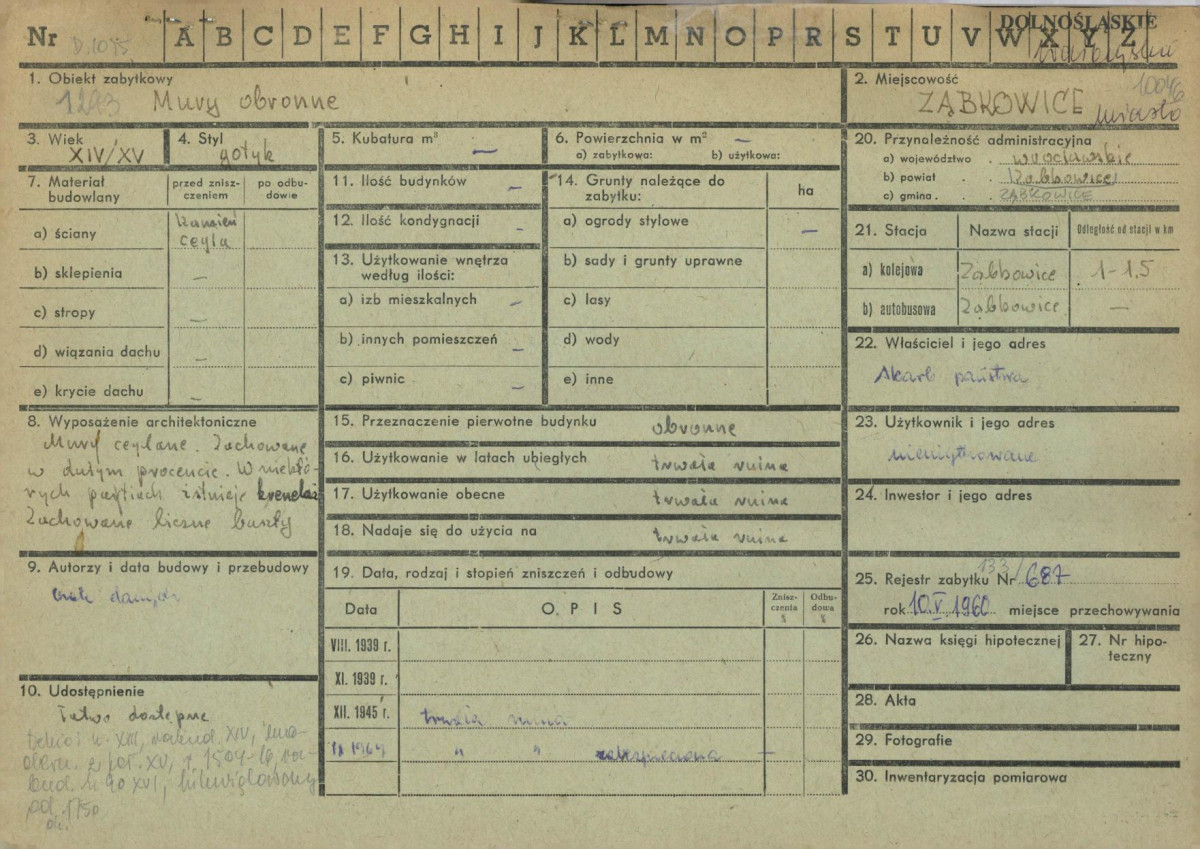 Nr D.1075 A B C D E F G H I J K L M N O P R S T U V W X Y Z DOLNOŚLĄSKIE
1. Obiekt zabytkowy
1293 Mury obronne
2. Miejscowość 10046
ZĄBKOWICE miasto
3. Wiek
XIV/XV
4. Styl
gotyk
5. Kubatura m³
—
6. Powierzchnia w m² —
a) zabytkowa: b) użytkowa:
7. Materiał budowlany
przed zniszczeniem
po odbudowie
a) ściany kamień
cegła
b) sklepienia —
c) stropy —
d) wiązania dachu —
e) krycie dachu —
11. Ilość budynków —
12. Ilość kondygnacji —
13. Użytkowanie wnętrza
według ilości:
a) izb mieszkalnych —
b) innych pomieszczeń —
c) piwnic —
14. Grunty należące do
zabytku:
ha
a) ogrody stylowe —
b) sady i grunty uprawne
c) lasy
d) wody
e) inne
20. Przynależność administracyjna
a) województwo . wrocławskie
b) powiat . . Ząbkowice
c) gmina . . ZĄBKOWICE
21. Stacja Nazwa stacji Odległość od stacji w km
a) kolejowa Ząbkowice 1-1,5
b) autobusowa Ząbkowice —
22. Właściciel i jego adres
Skarb państwa
23. Użytkownik i jego adres
nieużytkowane
24. Inwestor i jego adres
8. Wyposażenie architektoniczne
Mury ceglane. Zachowane
w dużym procencie. W niektó-
rych partiach istnieje krenelaż
Zachowane liczne baszty
9. Autorzy i data budowy i przebudowy
brak danych
10. Udostępnienie
Łatwo dostępne
XIII, XIV,
z poł. XV, 1504-16,
XVI,
od 1750
ok.
15. Przeznaczenie pierwotne budynku obronne
16. Użytkowanie w latach ubiegłych trwała ruina
17. Użytkowanie obecne trwała ruina
18. Nadaje się do użycia na trwała ruina
19. Data, rodzaj i stopień zniszczeń i odbudowy
Data OPIS Zniszczenia % Odbudowa %
VIII. 1939 r.
XI. 1939 r.
XII. 1945 r. trwała ruina
1964 " " zabezpieczona —
25. Rejestr zabytku Nr 133/687
rok 10.V.1960 miejsce przechowywania
26. Nazwa księgi hipotecznej
27. Nr hipo-
teczny
28. Akta
29. Fotografie
30. Inwentaryzacja pomiarowa